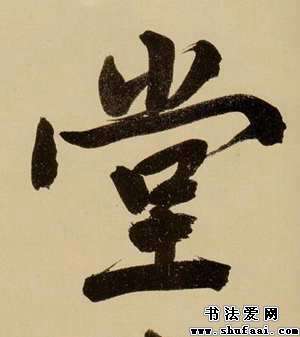 堂
书法爱网
www.shufaai.com